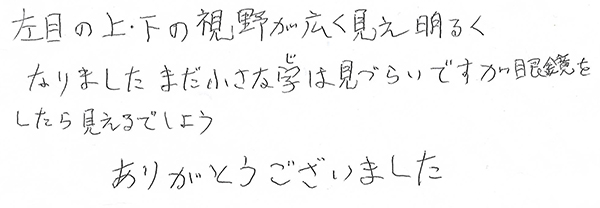 左目の上・下の視野が広く見え明るく
なりました まだ小さな字は見づらいですが眼鏡を
したら見えるでしょう
ありがとうございました